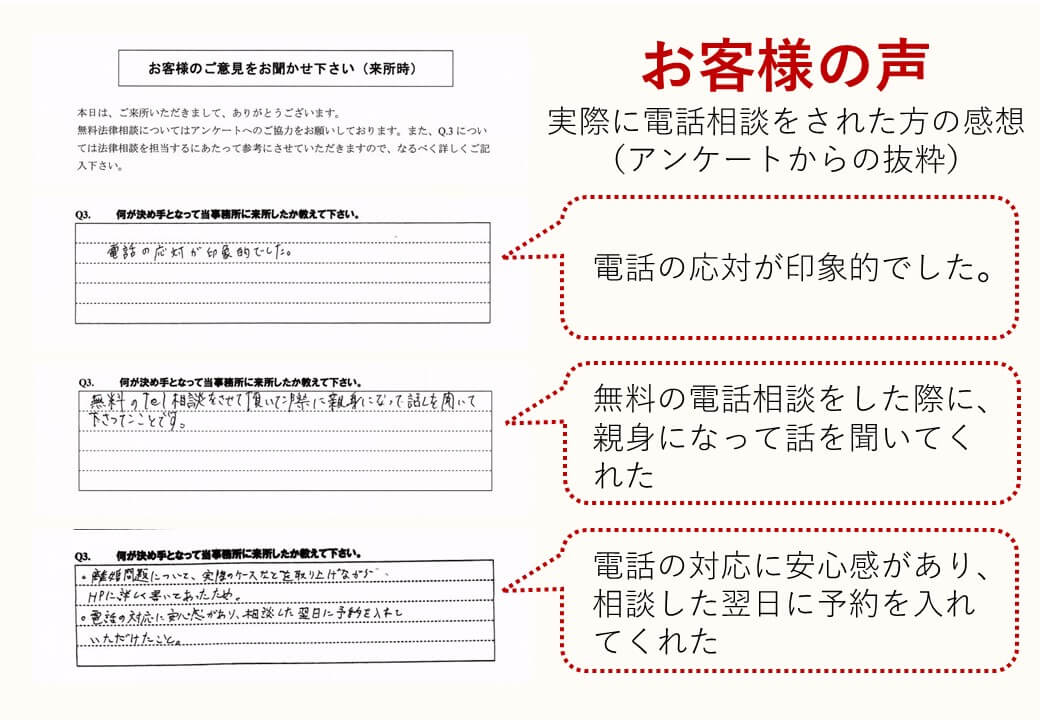 お客様のご意見をお聞かせ下さい（来所時）
本日は、ご来所いただきまして、ありがとうございます。
無料法律相談についてはアンケートへのご協力をお願いしております。また、Q.3 につい
ては法律相談を担当するにあたって参考にさせていただきますので、なるべく詳しくご記
入下さい。
お客様の声
実際に電話相談をされた方の感想
（アンケートからの抜粋）
Q3. 何が決め手となって当事務所に来所したか教えて下さい。
電話の応対が印象的でした。
電話の応対が印象的でした。
Q3. 何が決め手となって当事務所に来所したか教えて下さい。
無料のTel相談をさせて頂いた際に親身になって話しを聞いて
下さったことです。
無料の電話相談をした際に、
親身になって話を聞いてく
れた
Q3. 何が決め手となって当事務所に来所したか教えて下さい。
・離婚問題について、実際のケースなどを取り上げながら
HPに詳しく書いてあったため。
・電話の対応に安心感があり、相談した翌日に予約を入れて
いただけたこと。
電話の対応に安心感があり、
相談した翌日に予約を入れ
てくれた